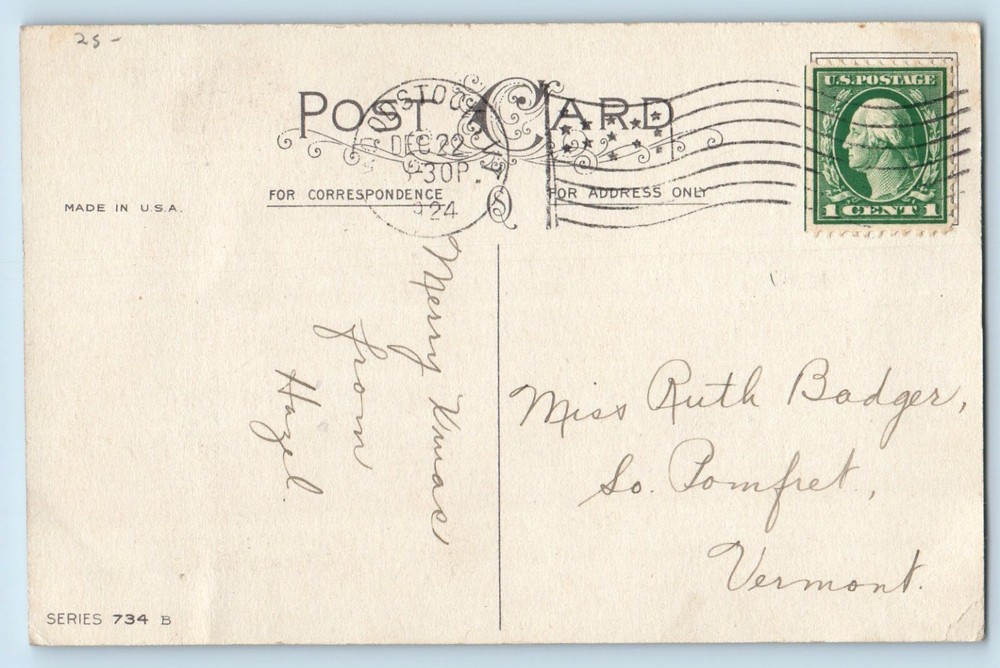 25-
POST CARD
DEC 22
30P.
1924
FOR CORRESPONDENCE
FOR ADDRESS ONLY
U.S. POSTAGE
1 CENT 1
MADE IN U.S.A.
Merry Xmas
from
Hazel.
Miss Ruth Badger,
So. Pomfret,
Vermont.
SERIES 734 B